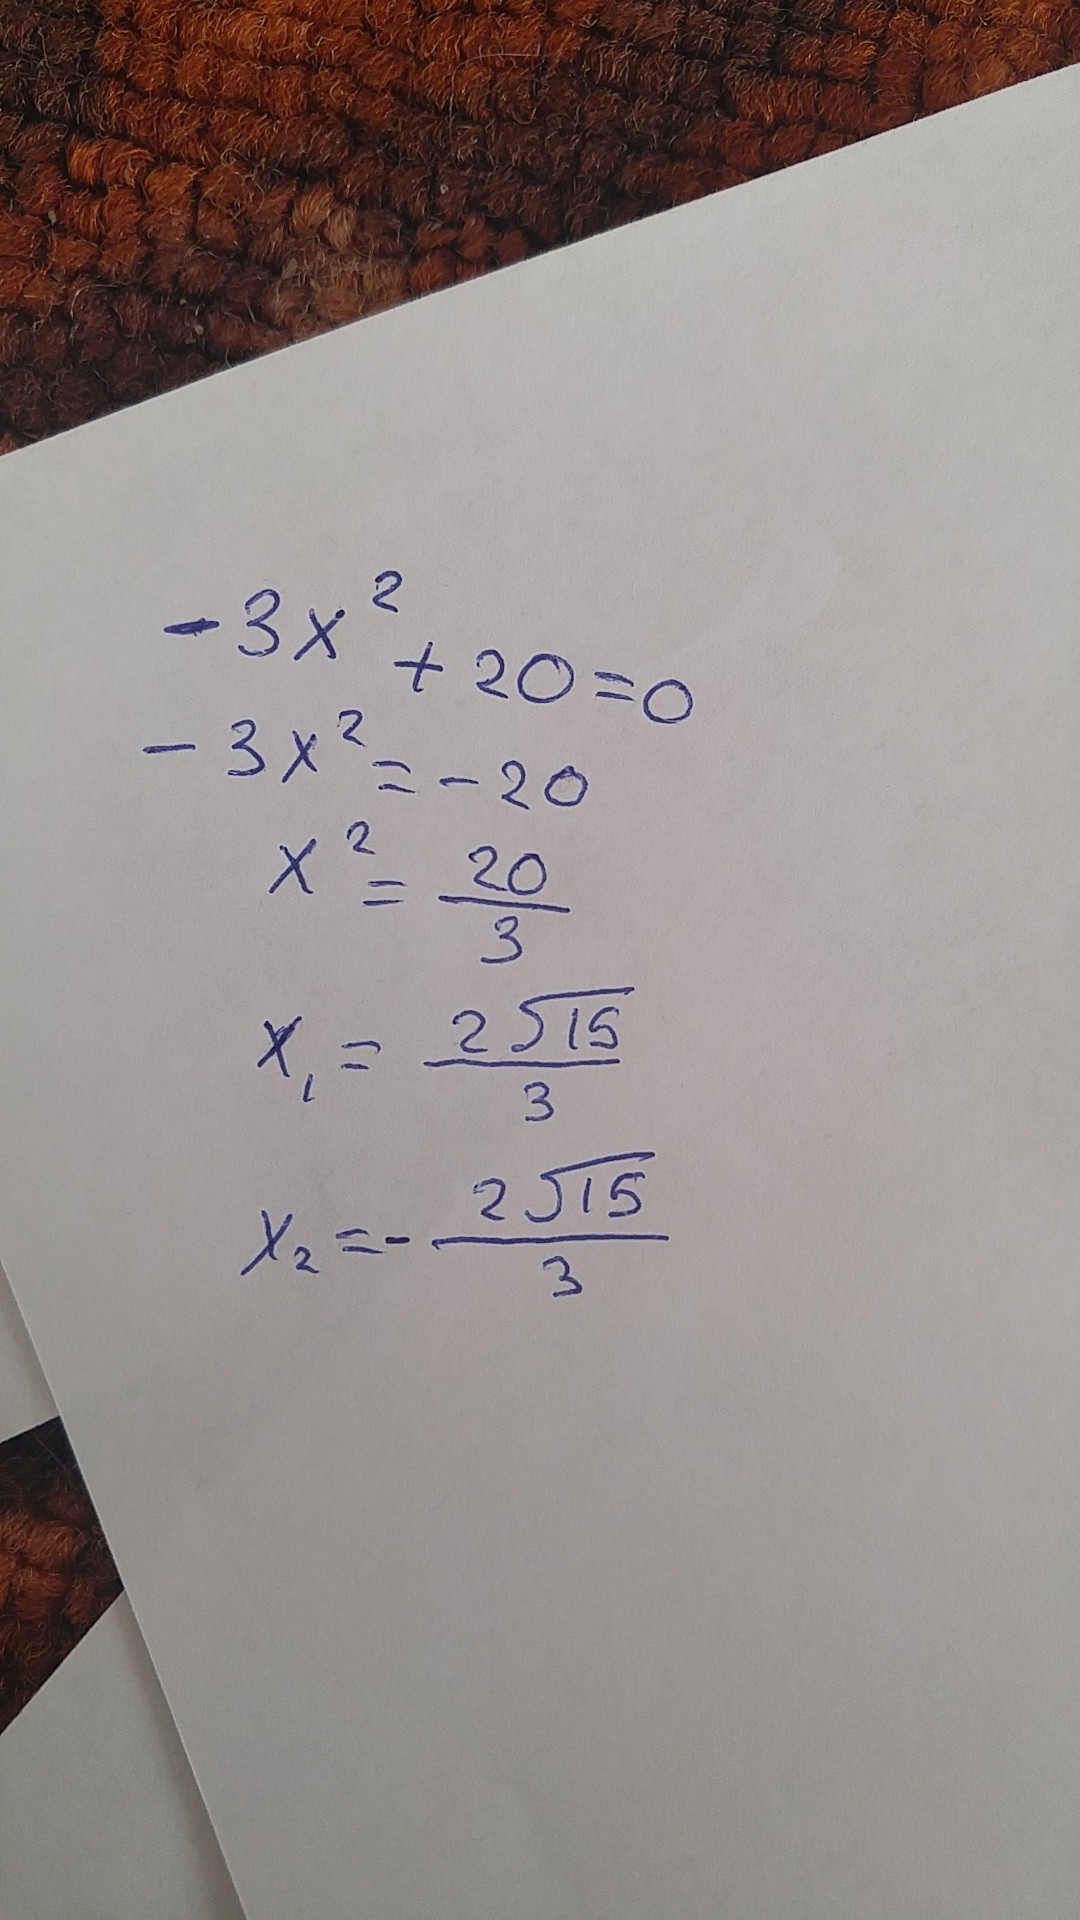 -3x² + 20 = 0
-3x² = -20
x² = 20/3
x₁ = 2√15/3
x₂ = - 2√15/3